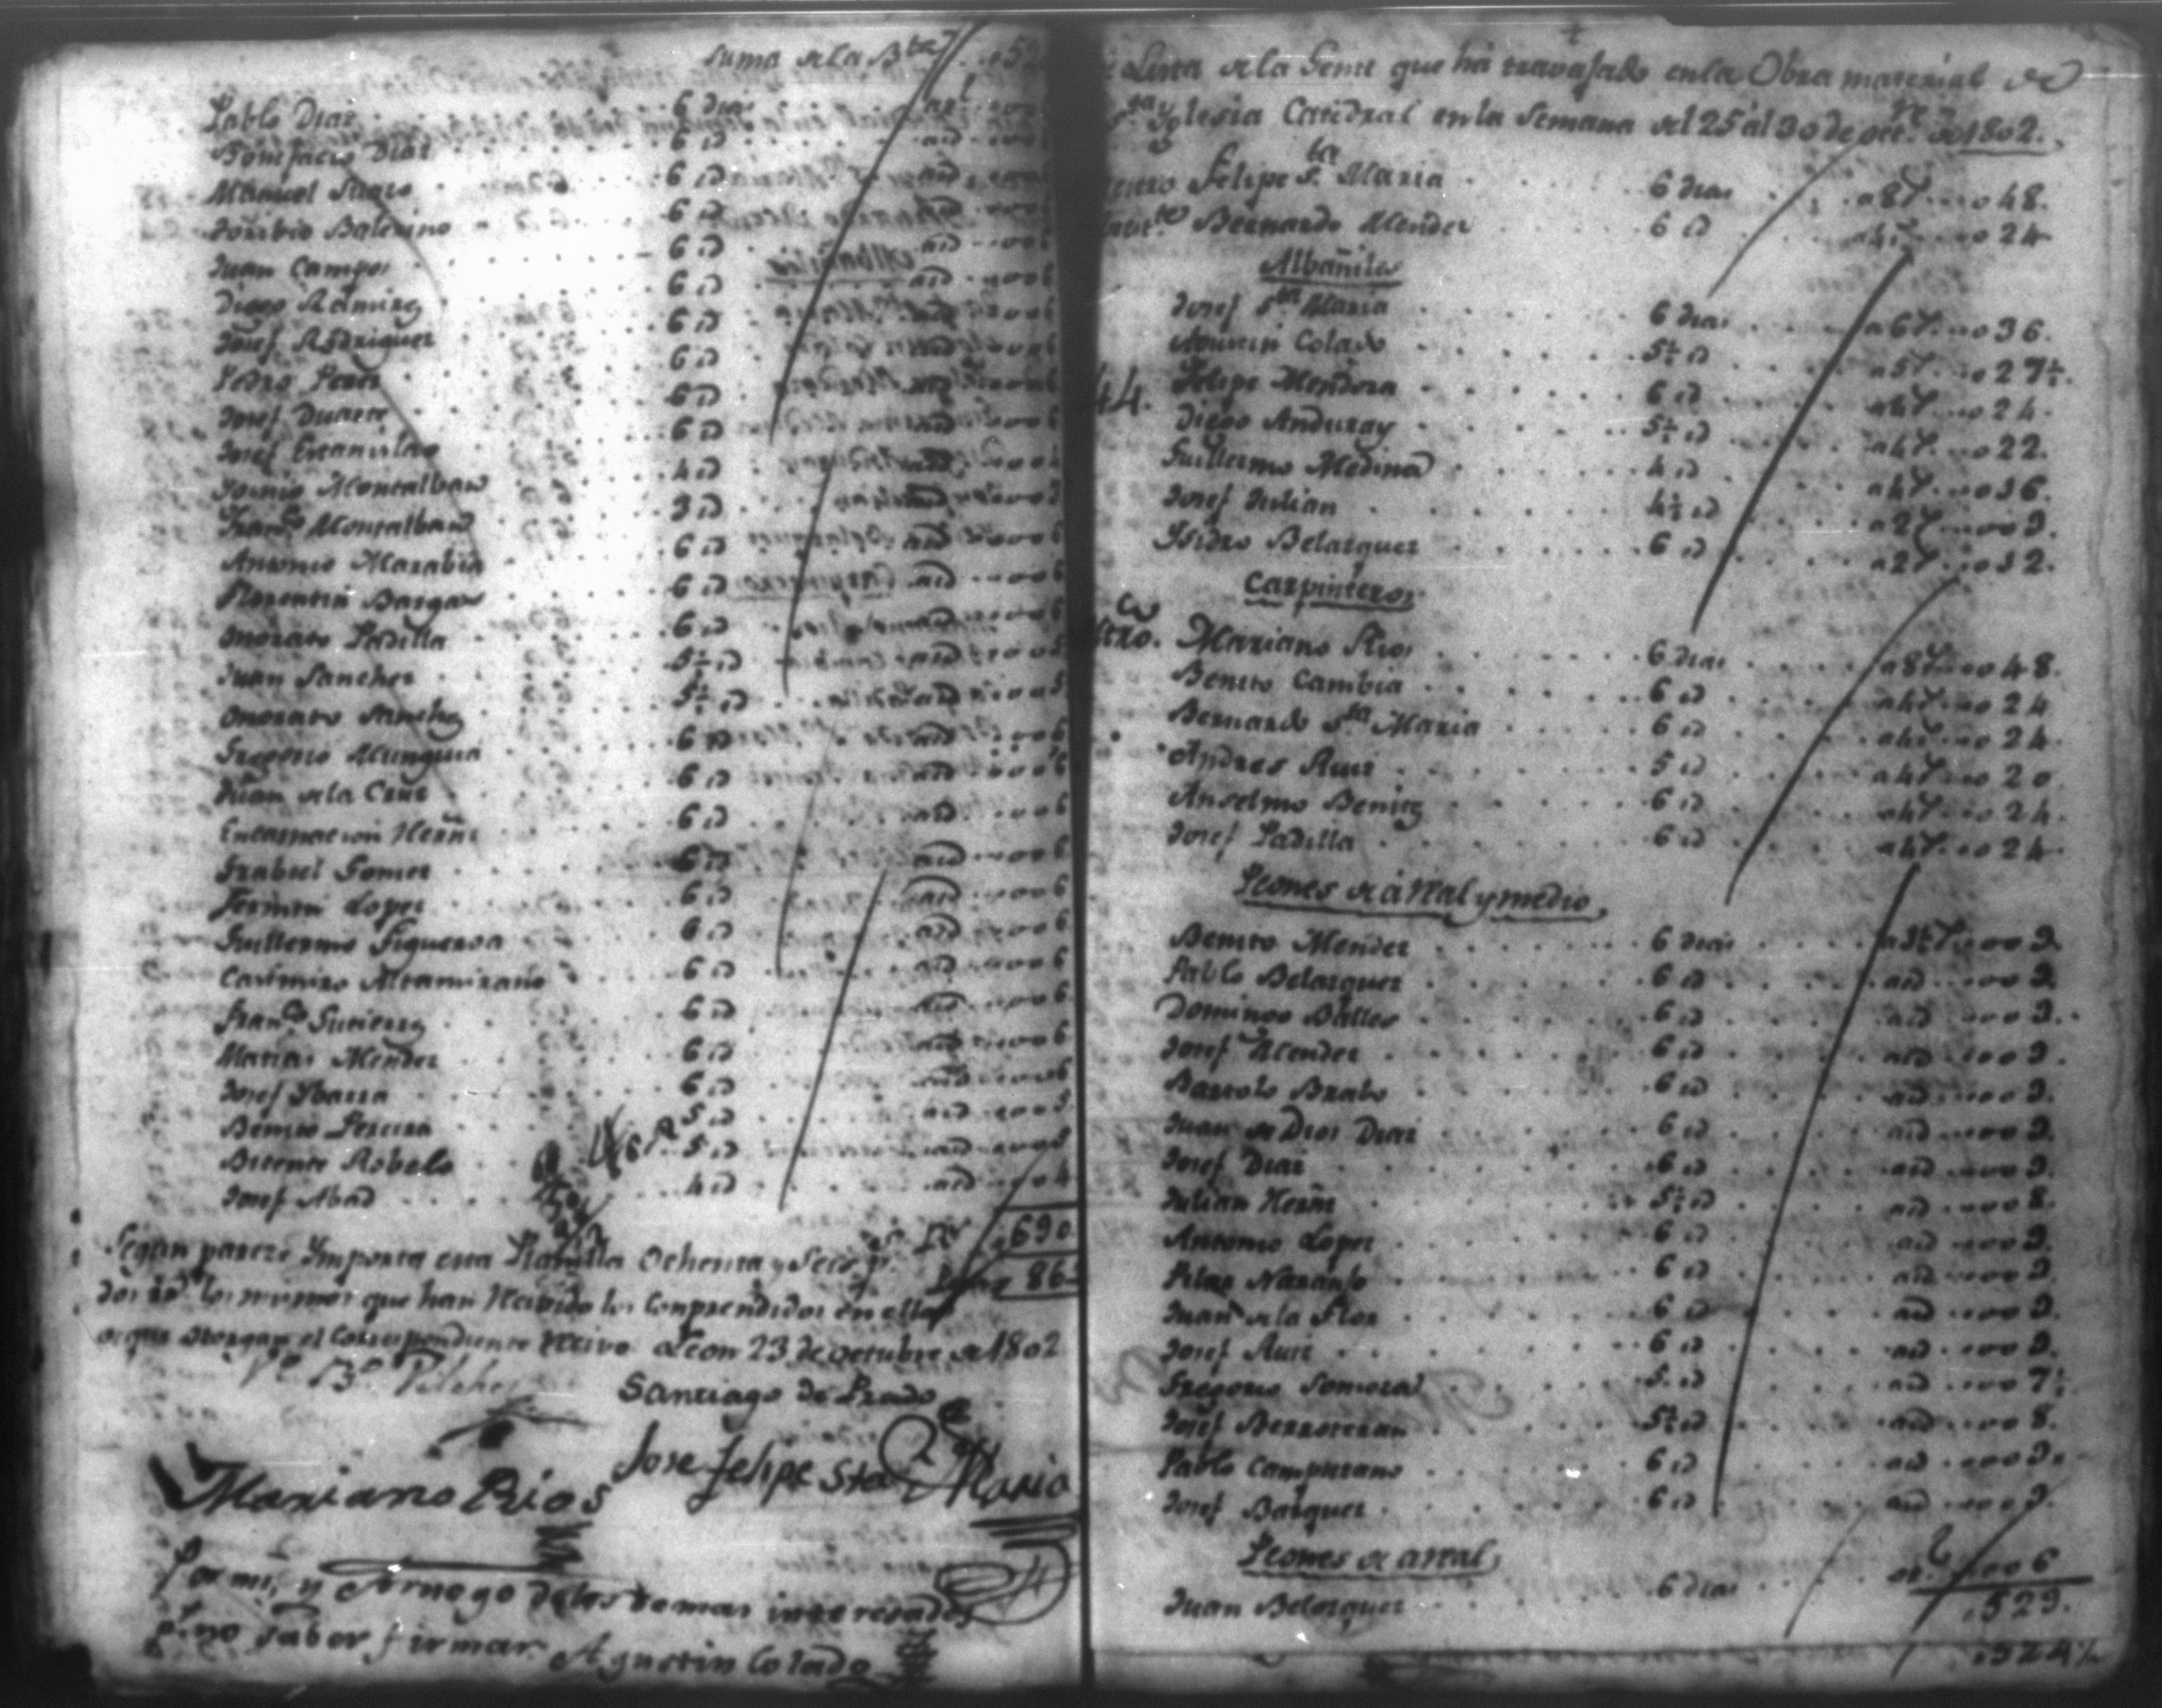 Suma de la B.ta 52
Pablo Diaz 6 dias a 1
Bonifacio Diaz 6 id id
Manuel 6 id id
Toribio Balerino 6 id id
Juan Campos 6 id id
Diego Ramirez 6 id id 6
Josef Rodriguez 6 id 6
Pedro Perez 6 id 6
Josef Duarte 6 id 6
Josef Estanislao 6 id 6
Montalban 4 id 4
Fran.co Montalban 3 id 3
Antonio Marabia 6 id id 6
Florentin Bargas 6 id id 6
Onorato Padilla 6 id id 6
Juan Sanchez 5½ id id 5
Onorato Sanchez 5½ id id 5
Gregorio Munguia 6 id id 6
Juan de la Cruz 6 id id 6
Encarnacion Herñz 6 id id 6
Grabiel Gomez 6 id id 6
Fermin Lopez 6 id id 6
Guillermo Figueroa 6 id id 6
Casimiro Altamirano 6 id id 6
Fran.co Gutierrez 6 id id 6
Matias Mendez 6 id id 6
Josef Ybarra 6 id id 6
Benito Pereira 5 id id 5
Bicente Robelo 5 id id 5
Josef Abad 4 id id 4
690
Segun parece Ymporta esta Planilla Ochenta y Seis p.s 86
dos r.s los mismos que han recivido los comprendidos en ella
de que otorgan el Correspondiente recivo. Leon 23 de octubre de 1802
V.o B.o
Santiago de Prado
Jose Felipe Sta Maria
Mariano Rios
Por mi, y a ruego de los demas interesados
p.r no saber firmar. Agustin Colado
Lista de la Gente que há travajado en la Obra material de
s.ta Yglesia Catedral en la Semana del 25 al 30 de oct.re de 1802.
Felipe S.ta Maria 6 dias a 8 48.
Bernardo Mendez 6 id a 4 24
Albañiles
Josef S.ta Maria 6 dias a 6 36.
Agustin Colado 5½ id a 5 27½.
44. Felipe Mendoza 6 id a 4 24.
Diego Anduray 5½ id a 4 22.
Guillermo Medina 4 id a 4 16.
Josef Julian 4½ id a 2 9.
Ysidro Belasquez 6 id a 2 12.
Carpinteros
Mtro. Mariano Rios 6 dias a 8 48.
Benito Cambia 6 id a 4 24
Bernardo S.ta Maria 6 id a 4 24.
Andres Ruiz 5 id a 4 20
Anselmo Benitez 6 id a 4 24.
Josef Padilla 6 id a 4 24.
Peones de á Real y medio.
Benito Mendez 6 dias a 1½ 9.
Pablo Belasquez 6 id id 9.
Domingo Balles 6 id id 9.
Josef Mendez 6 id id 9.
Bartolo Brabo 6 id id 9.
Juan de Dios Diaz 6 id id 9.
Josef Diaz 6 id id 9.
Julian Herñz 5½ id id 8.
Antonio Lopez 6 id id 9.
Pilar Naranjo 6 id id 9.
Juan de la Flor 6 id id 9.
Josef Ruiz 6 id id 9.
Gregorio Somoza 5 id id 7½.
Josef Berroteran 5½ id id 8.
Pablo Campusano 6 id id 9.
Josef Basquez 6 id id 9.
Peones de a real,
Juan Belasquez 6 dias 6
529.